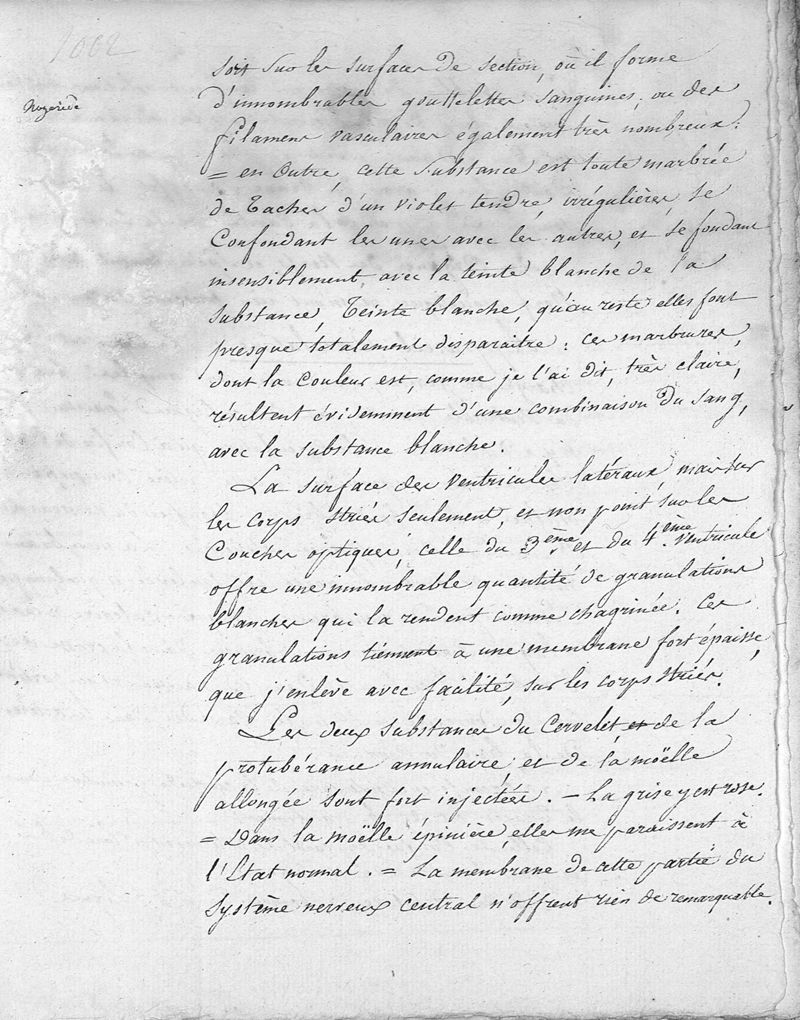 1002
soit sur les surfaces de section, où il forme
d'innombrables gouttelettes sanguines, ou des
filamens vasculaires également très nombreux :
= en Outre, cette substance est toute marbrée
de taches d'un violet tendre, irrégulières, se
Confondant les unes avec les autres, et se fondant
insensiblement avec la teinte blanche de la
substance, teinte blanche, qu'au reste elles font
presque totalement disparaitre : ces marbrures,
dont la Couleur est, comme je l'ai dit, très claire,
résultent évidemment d'une combinaison du sang,
avec la substance blanche.
La surface des ventricules latéraux, mais sur
les corps striés seulement, et non point sur les
Couches optiques, celle du 3.ème et du 4.ème ventricule
offre une innombrable quantité de granulations
blanches qui la rendent comme chagrinée. Ces
granulations tiennent à une membrane fort épaisse,
que j'enlève avec facilité, sur les corps striés.
Les deux substances du Cervelet et de la
protubérance annulaire et de la moëlle
allongée sont fort injectées. — La grise y est rose.
= Dans la moëlle épinière, elles me paraissent à
l'État normal. = La membrane de cette partie du
système nerveux central n'offrent rien de remarquable.